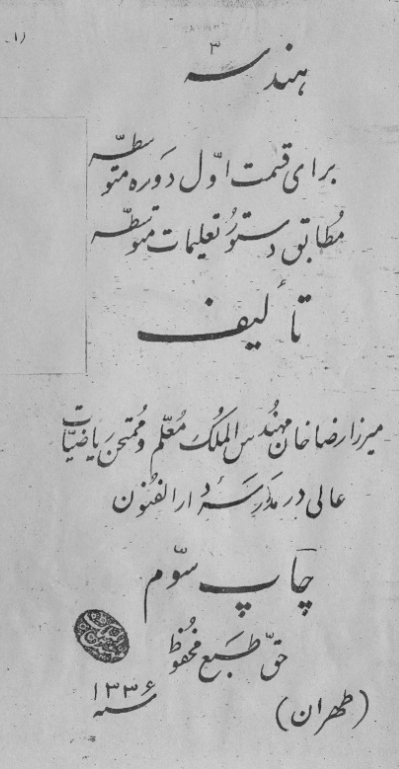 هندسه
برای قسمت اوّل دَوره متوسطّه
مُطابق دستورُ تعلیمات متوسطّه
تألیف
میرزا رضاخان مهندُس الملُک مُعلّم و مُمتحن ریاضیّات
عالی در مدَرسهٔ دارالفنُون
چاپ سوّم
حقّ طَبع محفُوظ
سنه ۱۳۳۶
(طهران)